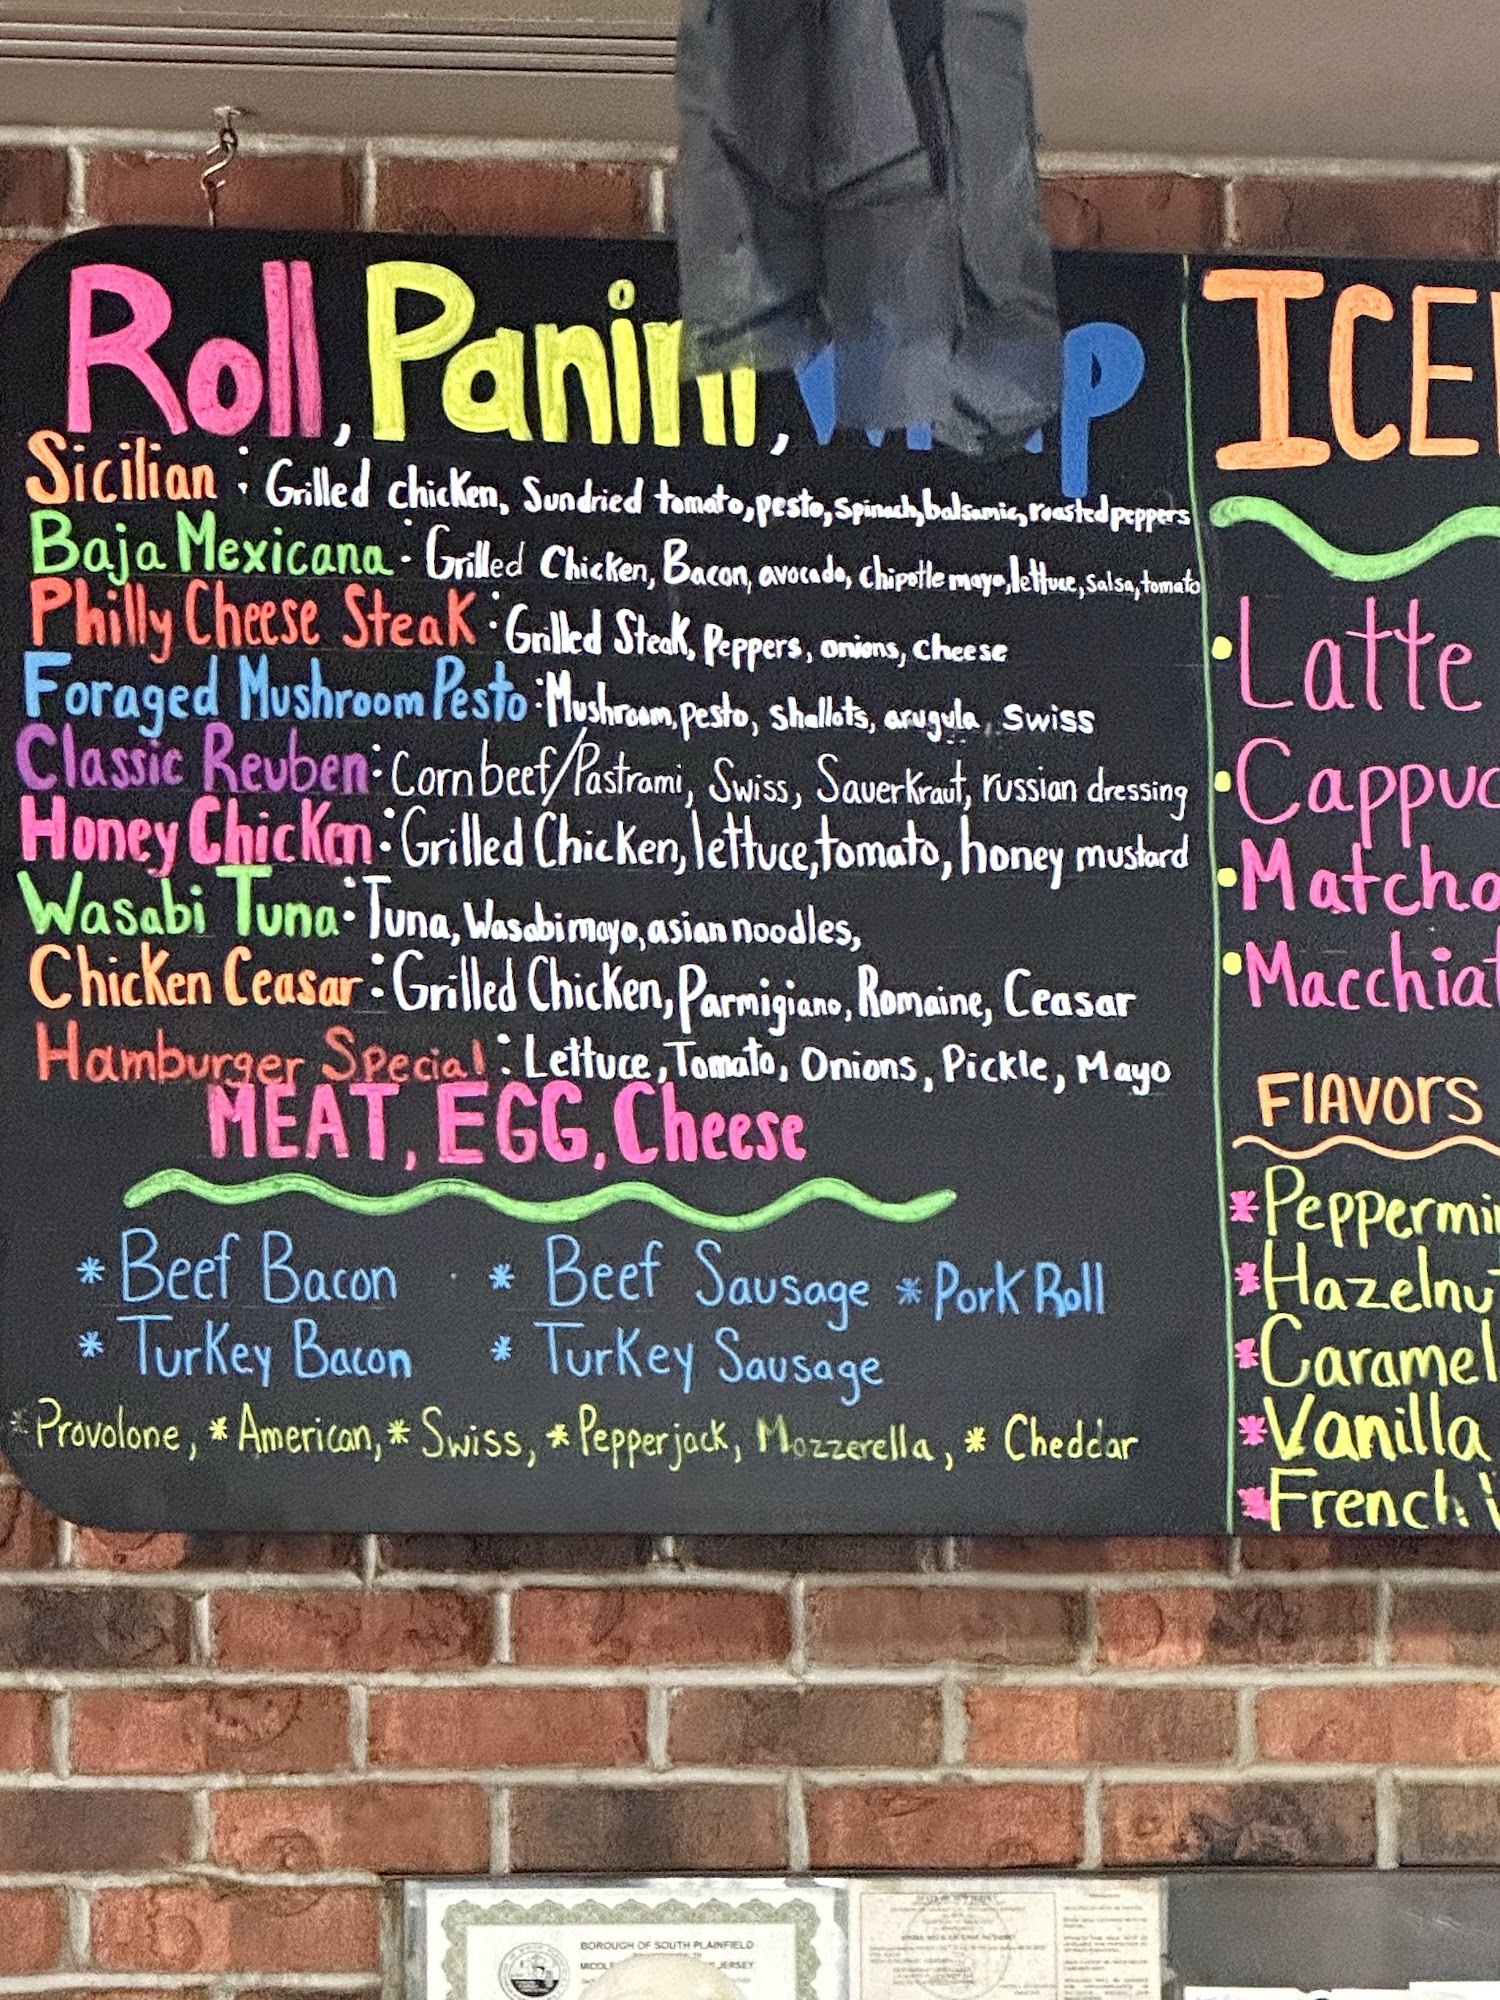 Roll, Panini,
Sicilian : Grilled chicken, Sundried tomato, pesto, spinach, balsamic, roasted peppers
Baja Mexicana : Grilled Chicken, Bacon, avocado, chipotle mayo, lettuce, salsa, tomato
Philly Cheese Steak : Grilled Steak, Peppers, onions, cheese
Foraged Mushroom Pesto : Mushroom, pesto, shallots, arugula, swiss
Classic Reuben : Corn beef/Pastrami, Swiss, Sauerkraut, russian dressing
Honey Chicken : Grilled Chicken, lettuce, tomato, honey mustard
Wasabi Tuna : Tuna, Wasabi mayo, asian noodles,
Chicken Ceasar : Grilled Chicken, Parmigiano, Romaine, Ceasar
Hamburger Special : Lettuce, Tomato, Onions, Pickle, Mayo
MEAT, EGG, Cheese
* Beef Bacon * Beef Sausage * Pork Roll
* Turkey Bacon * Turkey Sausage
* Provolone, * American, * Swiss, * Pepperjack, Mozzerella, * Cheddar
ICE
• Latte
• Cappuc
• Matcha
• Macchiat
FlAVORS
* Peppermi
* Hazelnu
* Caramel
* Vanilla
* French
BOROUGH OF SOUTH PLAINFIELD
JERSEY